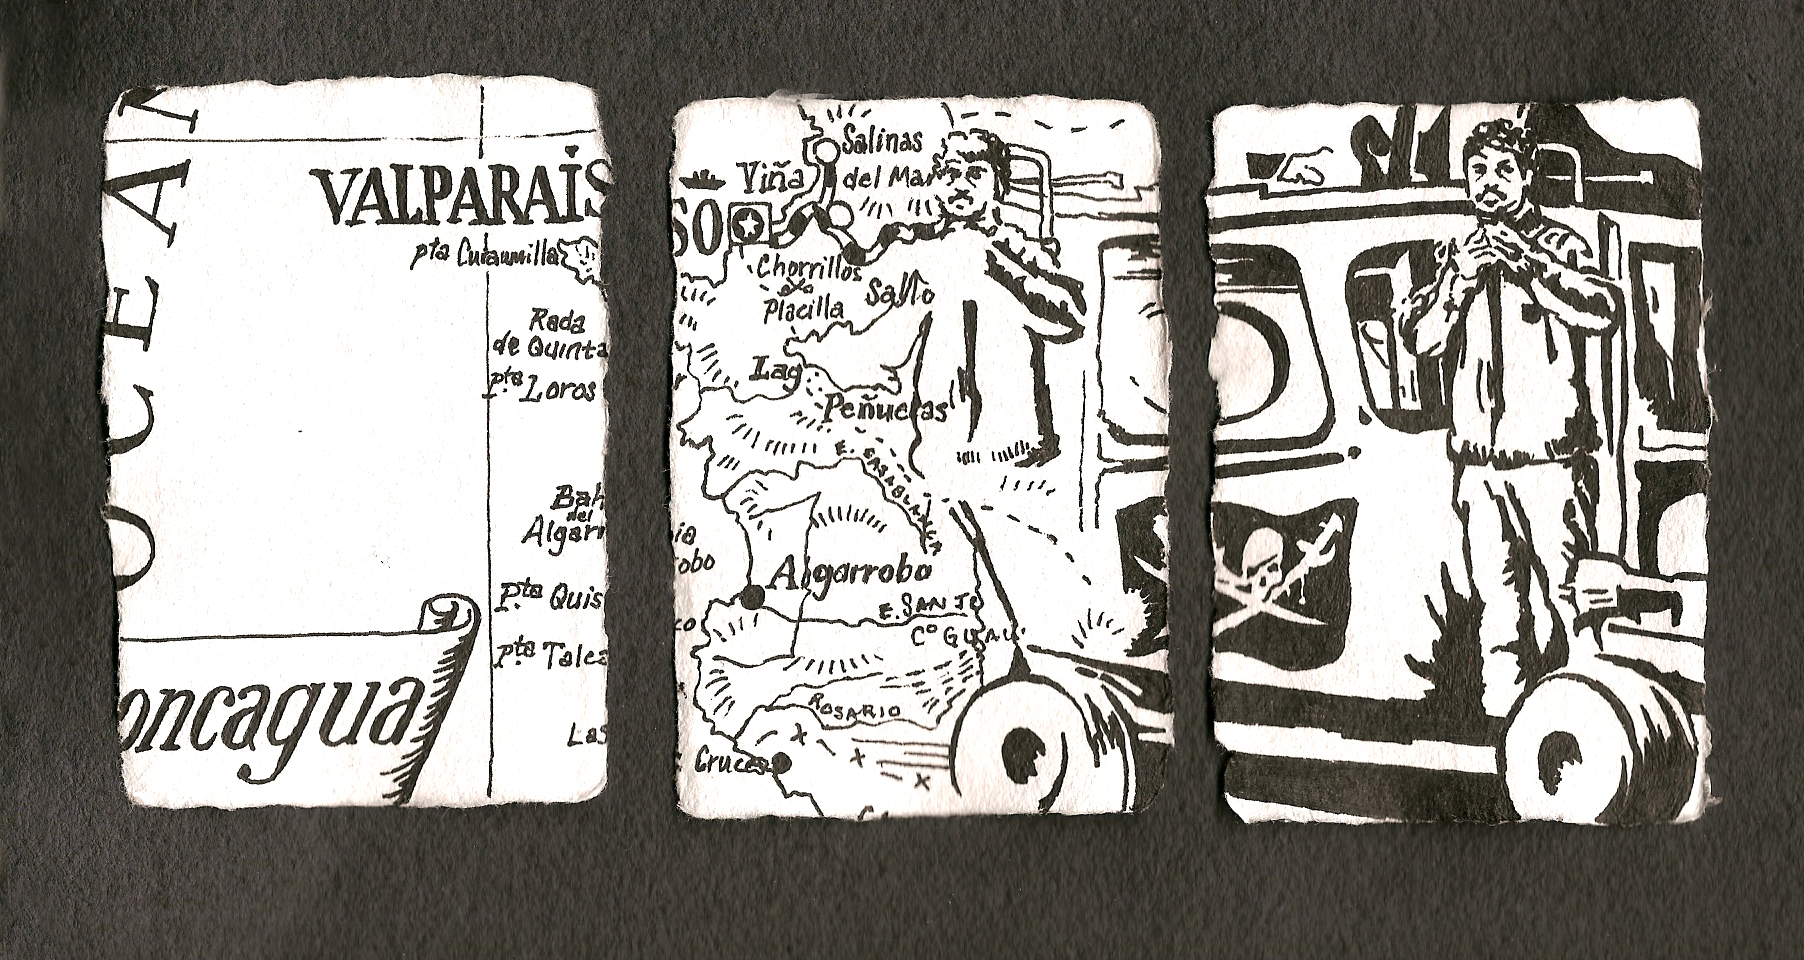 OCEAN
VALPARAÍS
pta Curaumilla
Rada
de Quinta
Pta Loros
Bah
del
Algarr
Pta Quis
Pta Talca
Las
oncagua
Salinas
del Mar
Viña
SO
Chorrillos
Placilla
Salto
Lag
Peñuelas
E. CASABLANCA
ia
obo
Algarrobo
E. SAN JO
co
Cº GUAU
ROSARIO
Cruces